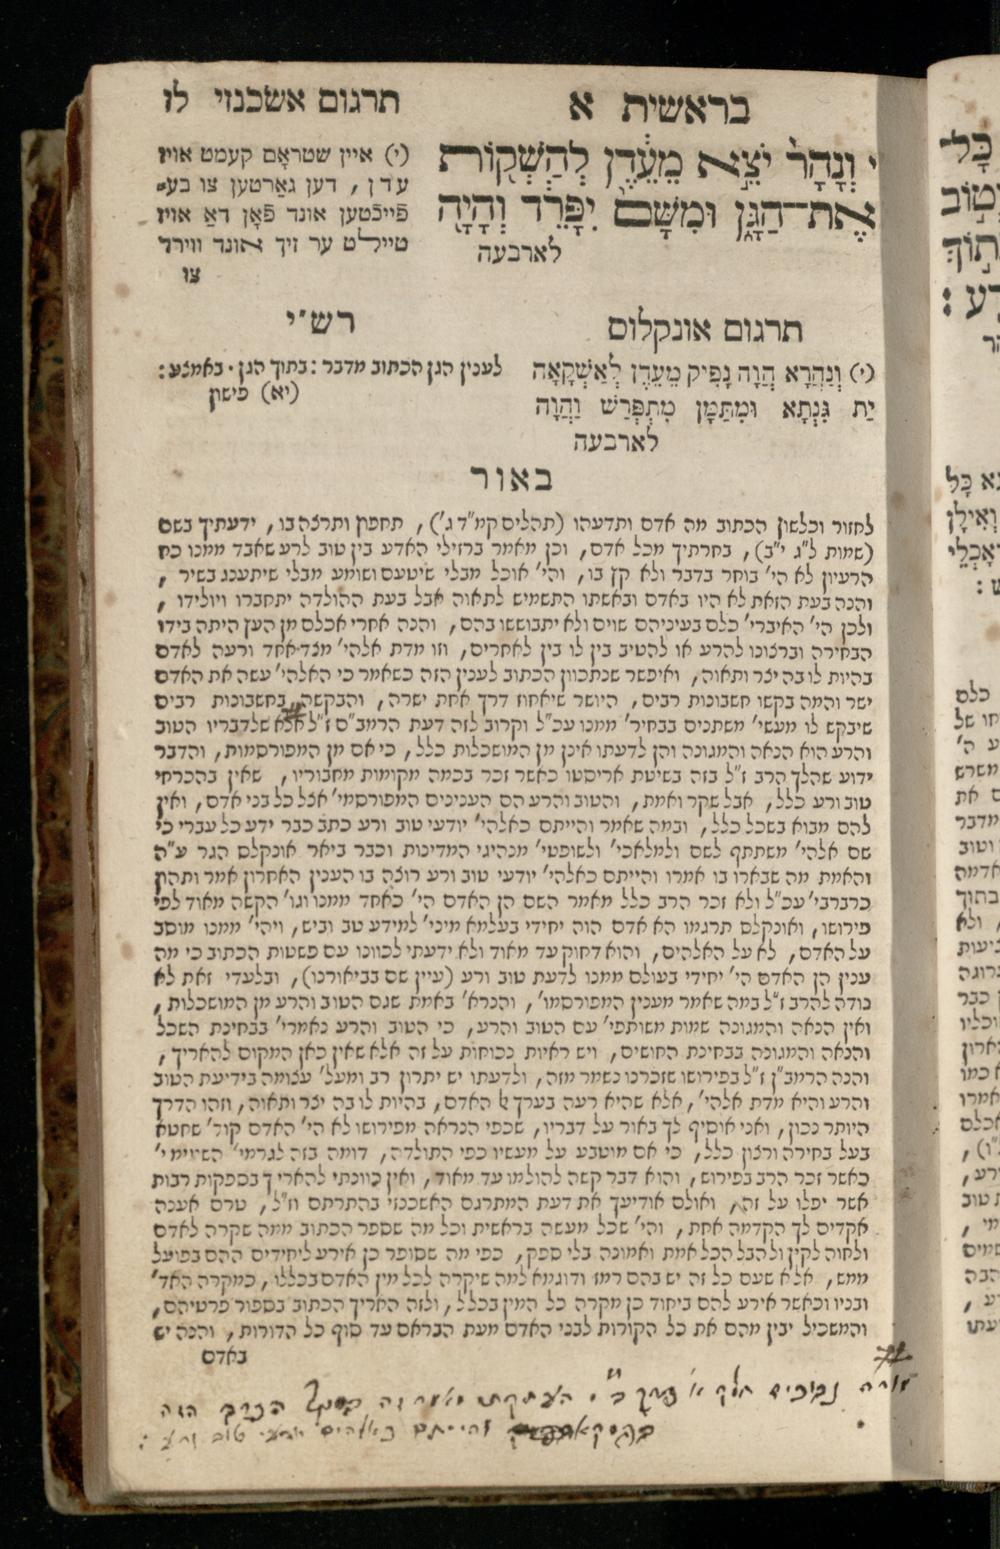 בראשית א
תרגום אשכנזי לז
י וְנָהָר֙ יֹצֵ֣א מֵעֵ֔דֶן לְהַשְׁק֖וֹת
אֶת־הַגָּ֑ן וּמִשָּׁם֙ יִפָּרֵ֔ד וְהָיָ֖ה
לארבעה
(י) איין שטראָם קעמט אויז
עדן, דען גאַרטען צו בע׳
פֿייכֿטען אונד פֿאָן דאַ אויז
טיילט ער זיך אונד ווירד
צו
תרגום אונקלוס
(י) וְנַהֲרָא הֲוָה נָפִיק מֵעֵדֶן לְאַשְׁקָאָה
יַת גִּנְתָא וּמִתַּמָּן מִתְפְּרַשׁ וַהֲוָה
לארבעה
רש״י
לענין הגן הכתוב מדבר: בתוך הגן. באמצע:
(יא) פישון
באור
לחזור וכלשון הכתוב מה אדם ותדעהו (תהלים קמ״ד ג׳), תחפון ותרצה בו, ידעתיך בשם
(שמות ל״ג י״ב), בחרתיך מכל אדם, וכן מאמר ברזילי האדע בין טוב לרע שאבד ממנו כח
הרעיון לא הי׳ בוחר בדבר ולא קץ בו, והי׳ אוכל מבלי שיטעם ושומע מבלי שיתענג בשיר,
והנה בעת הזאת לא היו באדם ובאשתו התשמיש לתאוה אבל בעת ההולדה יתחברו ויולידו,
ולכן הי׳ האיברי׳ כלם בעיניהם שוים ולא יתבוששו בהם, והנה אחרי אכלם מן העץ היתה בידו
הבחירה וברצונו להרע או להטיב בין לו בין לאחרים, וזו מדת אלהי׳ מצד אחד ורעה לאדם
בהיות לו בה יצר ותאוה, ואיפשר שנתכוון הכתוב לענין הזה כשאמר כי האלהי׳ עשה את האדם
ישר והמה בקשו חשבונות רבים, היושר שיאחוז דרך אחת ישרה, והבקשה בחשבונות רבים
שיבקש לו מעשי׳ משתנים בבחיר׳ ממנו עכ״ל וקרוב לזה דעת הרמב״ם ז״ל אלא שלדבריו הטוב
והרע הוא הנאה והמגונה והן לדעתו אינן מן המושכלות כלל, כי אם מן המפורסמות, והדבר
ידוע שהלך הרב ז״ל בזה בשיטת אריסטו כאשר זכר בכמה מקומות מחבוריו, שאין בהכרחי
טוב ורע כלל, אבל שקר ואמת, והטוב והרע הם הענינים המפורסמי׳ אצל כל בני אדם, ואין
להם מבוא בשכל כלל, ובמה שאמר והייתם כאלהי׳ יודעי טוב ורע כתב כבר ידע כל עברי כי
שם אלהי׳ משתתף לשם ולמלאכי׳ ולשופטי׳ מנהיגי המדינות וכבר ביאר אונקלס הגר ע״ה
והאמת מה שבארו בו אמרו והייתם כאלהי׳ יודעי טוב ורע רוצה בו הענין האחרון אמר ותהון
כרברבי׳ עכ״ל ולא זכר הרב כלל מאמר השם הן האדם הי׳ כאחד ממנו וגו׳ הקשה מאוד לפי
פירושו, ואונקלס תרגמו הא אדם הוה יחידי בעלמא מיני׳ למידע טב וביש, ויהי׳ ממנו מוסב
על האדם, לא על האלהים, והוא דחוק עד מאוד ולא ידעתי לכוונו עם פשטות הכתוב כי מה
ענין הן האדם הי׳ יחידי בעולם ממנו לדעת טוב ורע (עיין שם בביאורנו), ובלעדי זאת לא
נודה להרב ז״ל במה שאמר מענין המפורסמו׳, והנרא׳ באמת שגם הטוב והרע מן המושכלות,
ואין הנאה והמגונה שמות משותפי׳ עם הטוב והרע, כי הטוב והרע נאמרי׳ בבחינת השכל
והנאה והמגונה בבחינת החושים, ויש ראיות נכוחות על זה אלא שאין כאן המקום להאריך,
והנה הרמב״ן ז״ל בפירושו שזכרנו נשמר מזה, ולדעתו יש יתרון רב ומעל׳ עצומה בידיעת הטוב
והרע והיא מדת אלהי׳, אלא שהיא רעה בערך אל האדם, בהיות לו בה יצר ותאוה, וזהו הדרך
היותר נכון, ואני אוסיף לך באור על דבריו, שכפי הנראה מפירושו לא הי׳ האדם קוד׳ שחטא
בעל בחירה ורצון כלל, כי אם מוטבע על מעשיו כפי התולדה, דומה בזה לגרמי׳ השמימי׳
כאשר זכר הרב בפירוש, והוא דבר קשה להולמו עד מאוד, ואין כוונתי להאריך בספקות רבות
אשר יפלו על זה, ואולם אודיעך את דעת המתרגם האשכנזי בהתרתם וז״ל, טרם אענה
אקדים לך הקדמה אחת, והי׳ שכל מעשה בראשית וכל מה שספר הכתוב ממה שקרה לאדם
ולחוה לקין ולהבל הכל אמת ואמונה בלי ספק, כפי מה שסופר כן אירע ליחידים ההם בפועל
ממש, אלא שעם כל זה יש בהם רמז ודוגמא למה שיקרה לכל מין האדם בכללו, כמקרה האד׳
ובניו וכאשר אירע להם ביחוד כן מקרה כל המין בכלל, ולזה האריך הכתוב בספור פרטיהם,
והמשכיל יבין מהם את כל הקורות לבני האדם מעת הבראם עד סוף כל הדורות, והנה יש
באדם
מורה נבוכים חלק א׳ פרק ב׳
והייתם כאלהים יודעי טוב ורע: